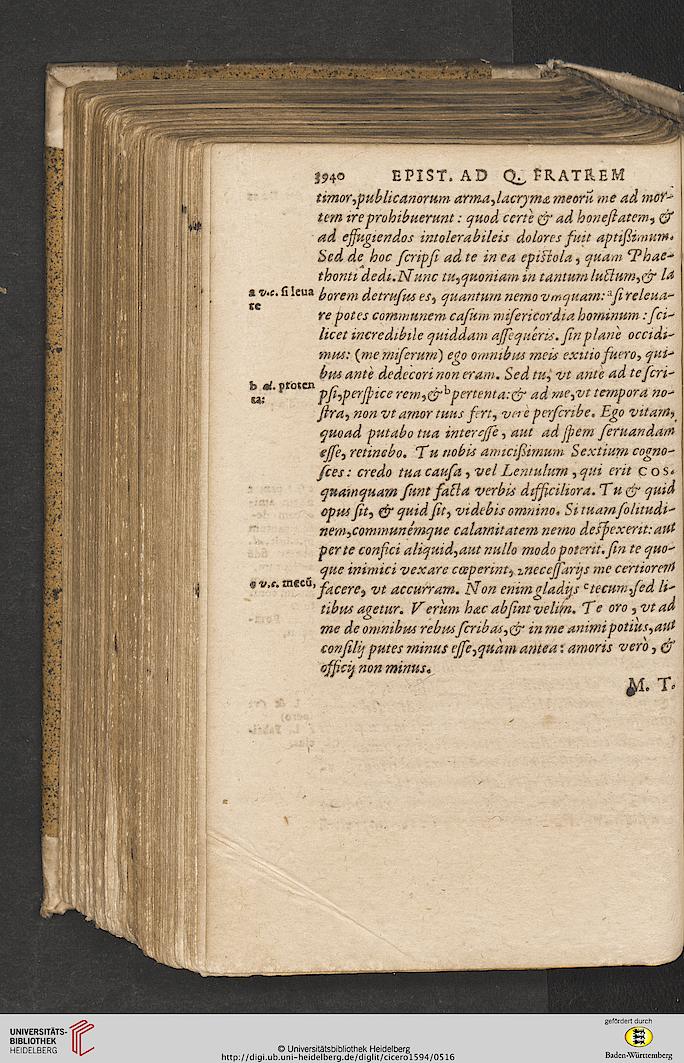 3940 EPIST. AD Q. FRATREM
timor, publicanorum arma, lacrymæ meorũ me ad mor-
tem ire prohibuerunt: quod certè & ad honeſtatem, &
ad effugiendos intolerabileis dolores fuit aptißimum.
Sed de hoc ſcripſi ad te in ea epiſtola, quam Phae-
thonti dedi. Nunc tu, quoniam in tantum luctum, & la
a v.c. ſi leua
te
borem detruſus es, quantum nemo vmquam: ᵃ ſi releua-
re potes communem caſum miſericordia hominum: ſci-
licet incredibile quiddam aſſequéris. ſin planè occidi-
mus: (me miſerum) ego omnibus meis exitio fuero, qui-
bus antè dedecori non eram. Sed tu, vt antè ad te ſcri-
b al. proten
ta:
pſi, perſpice rem, & ᵇ pertenta: & ad me, vt tempora no-
ſtra, non vt amor tuus fert, verè perſcribe. Ego vitam,
quoad putabo tua intereſſe, aut ad ſpem ſeruandam
eſſe, retinebo. Tu nobis amicißimum Sextium cogno-
ſces: credo tua cauſa, vel Lentulum, qui erit COS.
quamquam ſunt facta verbis difficiliora. Tu & quid
opus ſit, & quid ſit, videbis omnino. Si tuam ſolitudi-
nem, communémque calamitatem nemo deſpexerit: aut
per te confici aliquid, aut nullo modo poterit. ſin te quo-
que inimici vexare cœperint, necessarijs me certiorem
c v.c. mecũ,
facere, vt accurram. Non enim gladijs ᶜ tecum, ſed li-
tibus agetur. Verùm hac abſint velim. Te oro, vt ad
me de omnibus rebus ſcribas, & in me animi potiùs, aut
conſilij putes minus eſſe, quàm antea: amoris verò, &
officij non minus.
M. T.
UNIVERSITÄTS-
BIBLIOTHEK
HEIDELBERG
© Universitätsbibliothek Heidelberg
http://digi.ub.uni-heidelberg.de/diglit/cicero1594/0516
gefördert durch
Baden-Württemberg